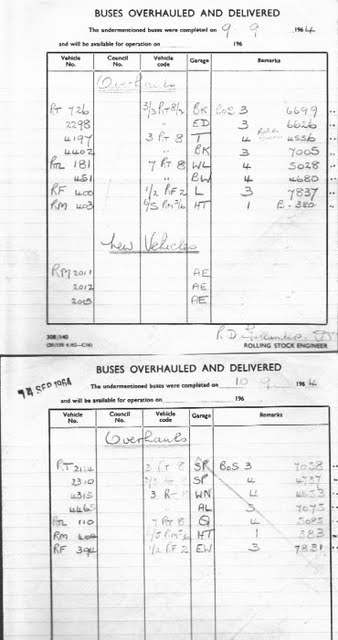 BUSES OVERHAULED AND DELIVERED
The undermentioned buses were completed on 9 9 1964
and will be available for operation on 196
Vehicle No. Council No. Vehicle code Garage Remarks
Overhauls
RT 726 3/3 RT8/2 BK BoS 3 6699
2298 " ED 3 6626
4197 3 RT 8 T 4 4556
4402 " BK 3 7005
RTL 181 7 RT 8 WL 4 5028
451 " BW 4 4680
RF 400 1/2 RF2 L 3 7837
RM 403 HT 1 B-380
New Vehicles
RM 2011 AE
2012 AE
2015 AE
308/140
ROLLING STOCK ENGINEER
BUSES OVERHAULED AND DELIVERED
14 SEP 1964 The undermentioned buses were completed on 10 9 1964
and will be available for operation on 196
Vehicle No. Council No. Vehicle code Garage Remarks
Overhauls
RT 2124 RT 8 SP BoS 3 7038
2310 SP 4 4737
4315 3 RT 8 WN 4 4653
4465 " AL 3 7075
RTL 110 7 RT 8 Q 4 5085
RM 404 HT 1 383
RF 394 1/2 RF2 EW 3 7831